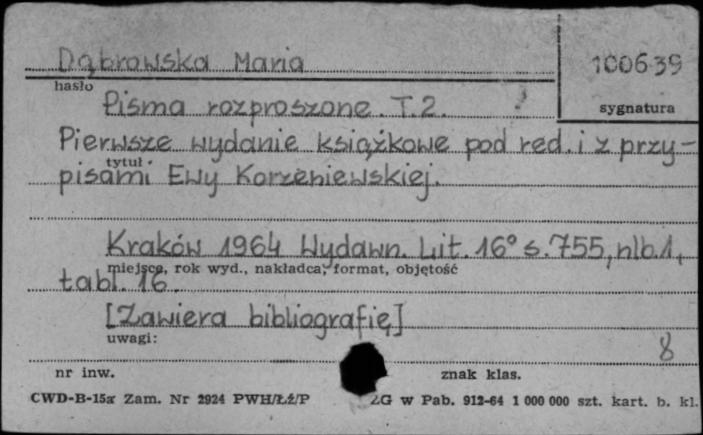 Dąbrowska Maria
100639
hasło
Pisma rozproszone. T.2.
sygnatura
Pierwsze wydanie książkowe pod red. i z przy-
tytuł
pisami Ewy Korzeniewskiej.
Kraków 1964 Wydawn. Lit. 16° s. 755, nlb. 1,
miejsce, rok wyd., nakładca, format, objętość
tabl. 16.
[Zawiera bibliografię]
uwagi:
8
nr inw.
znak klas.
CWD-B-15a Zam. Nr 2924 PWH/Łż/P ZG w Pab. 912-64 1 000 000 szt. kart. b. kl.